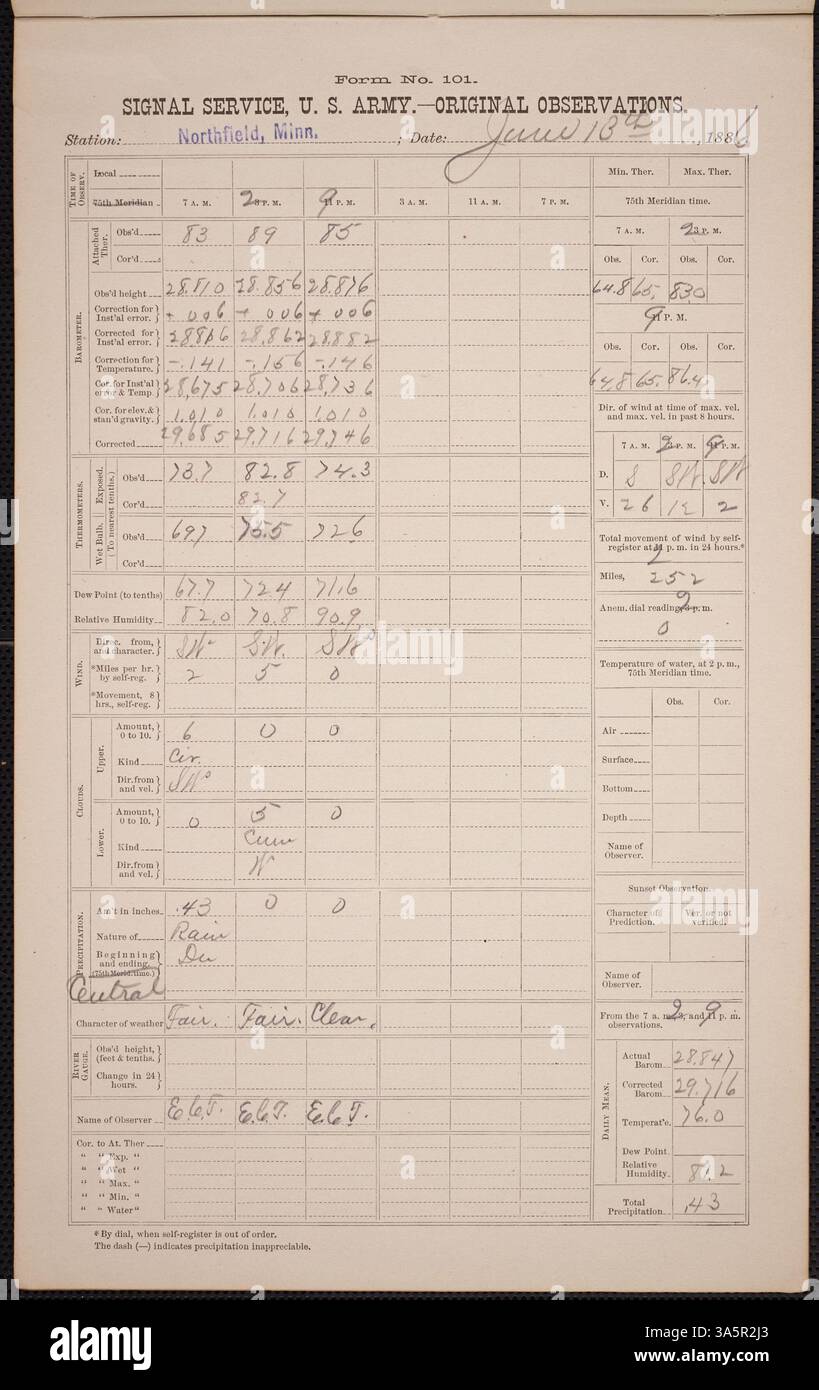 Form No. 101.
SIGNAL SERVICE, U. S. ARMY.—ORIGINAL OBSERVATIONS.
Station: Northfield, Minn. ; Date: June 13th, 1886
TIME OF OBSERV. Local
75th Meridian 7 A. M. 2 P. M. 9 P. M. 3 A. M. 11 A. M. 7 P. M.
BAROMETER.
Attached Ther. Obs'd 83 89 85
Cor'd
Obs'd height 28.810 28.856 28.876
Correction for Inst'al error. +.006 +.006 +.006
Corrected for Inst'al error. 28.816 28.862 28.882
Correction for Temperature. -.141 -.156 -.146
Cor. for Inst'al error & Temp. 28,675 28,706 28,736
Cor. for elev. & stan'd gravity. 1.010 1.010 1.010
Corrected 29.685 29.716 29.746
THERMOMETERS. (To nearest tenths.)
Exposed. Obs'd 73.7 82.8 74.3
Cor'd 82.7
Wet Bulb. Obs'd 697 75.5 726
Cor'd
Dew Point (to tenths) 67.7 724 71.6
Relative Humidity 82.0 70.8 90.9
WIND.
Direc. from, and character. SW SW. SW
*Miles per hr. by self-reg. 2 5 0
*Movement, 8 hrs., self-reg.
CLOUDS.
Upper. Amount, 0 to 10. 6 0 0
Kind Cir.
Dir. from and vel. SW
Lower. Amount, 0 to 10. 0 5 0
Kind Cum
Dir. from and vel. W
PRECIPITATION.
Am't in inches .43 0 0
Nature of Rain
Beginning and ending. (75th Merid. time.) Dn
Central
Character of weather Fair. Fair. Clear.
RIVER GAUGE.
Obs'd height, (feet & tenths.)
Change in 24 hours.
Name of Observer E.C.T. E.C.T. E.C.T.
Cor. to At. Ther
" " Exp. "
" " Wet "
" " Max. "
" " Min. "
" " Water"
*By dial, when self-register is out of order.
The dash (—) indicates precipitation inappreciable.
Min. Ther. Max. Ther.
75th Meridian time.
7 A. M. 2 P. M.
Obs. Cor. Obs. Cor.
64.8 65. 83.0
9 P. M.
Obs. Cor. Obs. Cor.
64.8 65. 86.4
Dir. of wind at time of max. vel. and max. vel. in past 8 hours.
7 A. M. 2 P. M. 9 P. M.
D. S SW. SW
V. 26 12 2
Total movement of wind by self-register at 2 p. m. in 24 hours.*
Miles, 252
Anem. dial reading, 2 p. m.
0
Temperature of water, at 2 p. m., 75th Meridian time.
Obs. Cor.
Air
Surface
Bottom
Depth
Name of Observer.
Sunset Observation.
Character of Prediction. Ver. or not verified.
Name of Observer.
From the 7 a. m., 2, and 9 p. m. observations.
DAILY MEAN.
Actual Barom 28.847
Corrected Barom 29.716
Temperat'e. 76.0
Dew Point
Relative Humidity 81.2
Total Precipitation .43
alamy
Image ID: 3A5R2J3
www.alamy.com